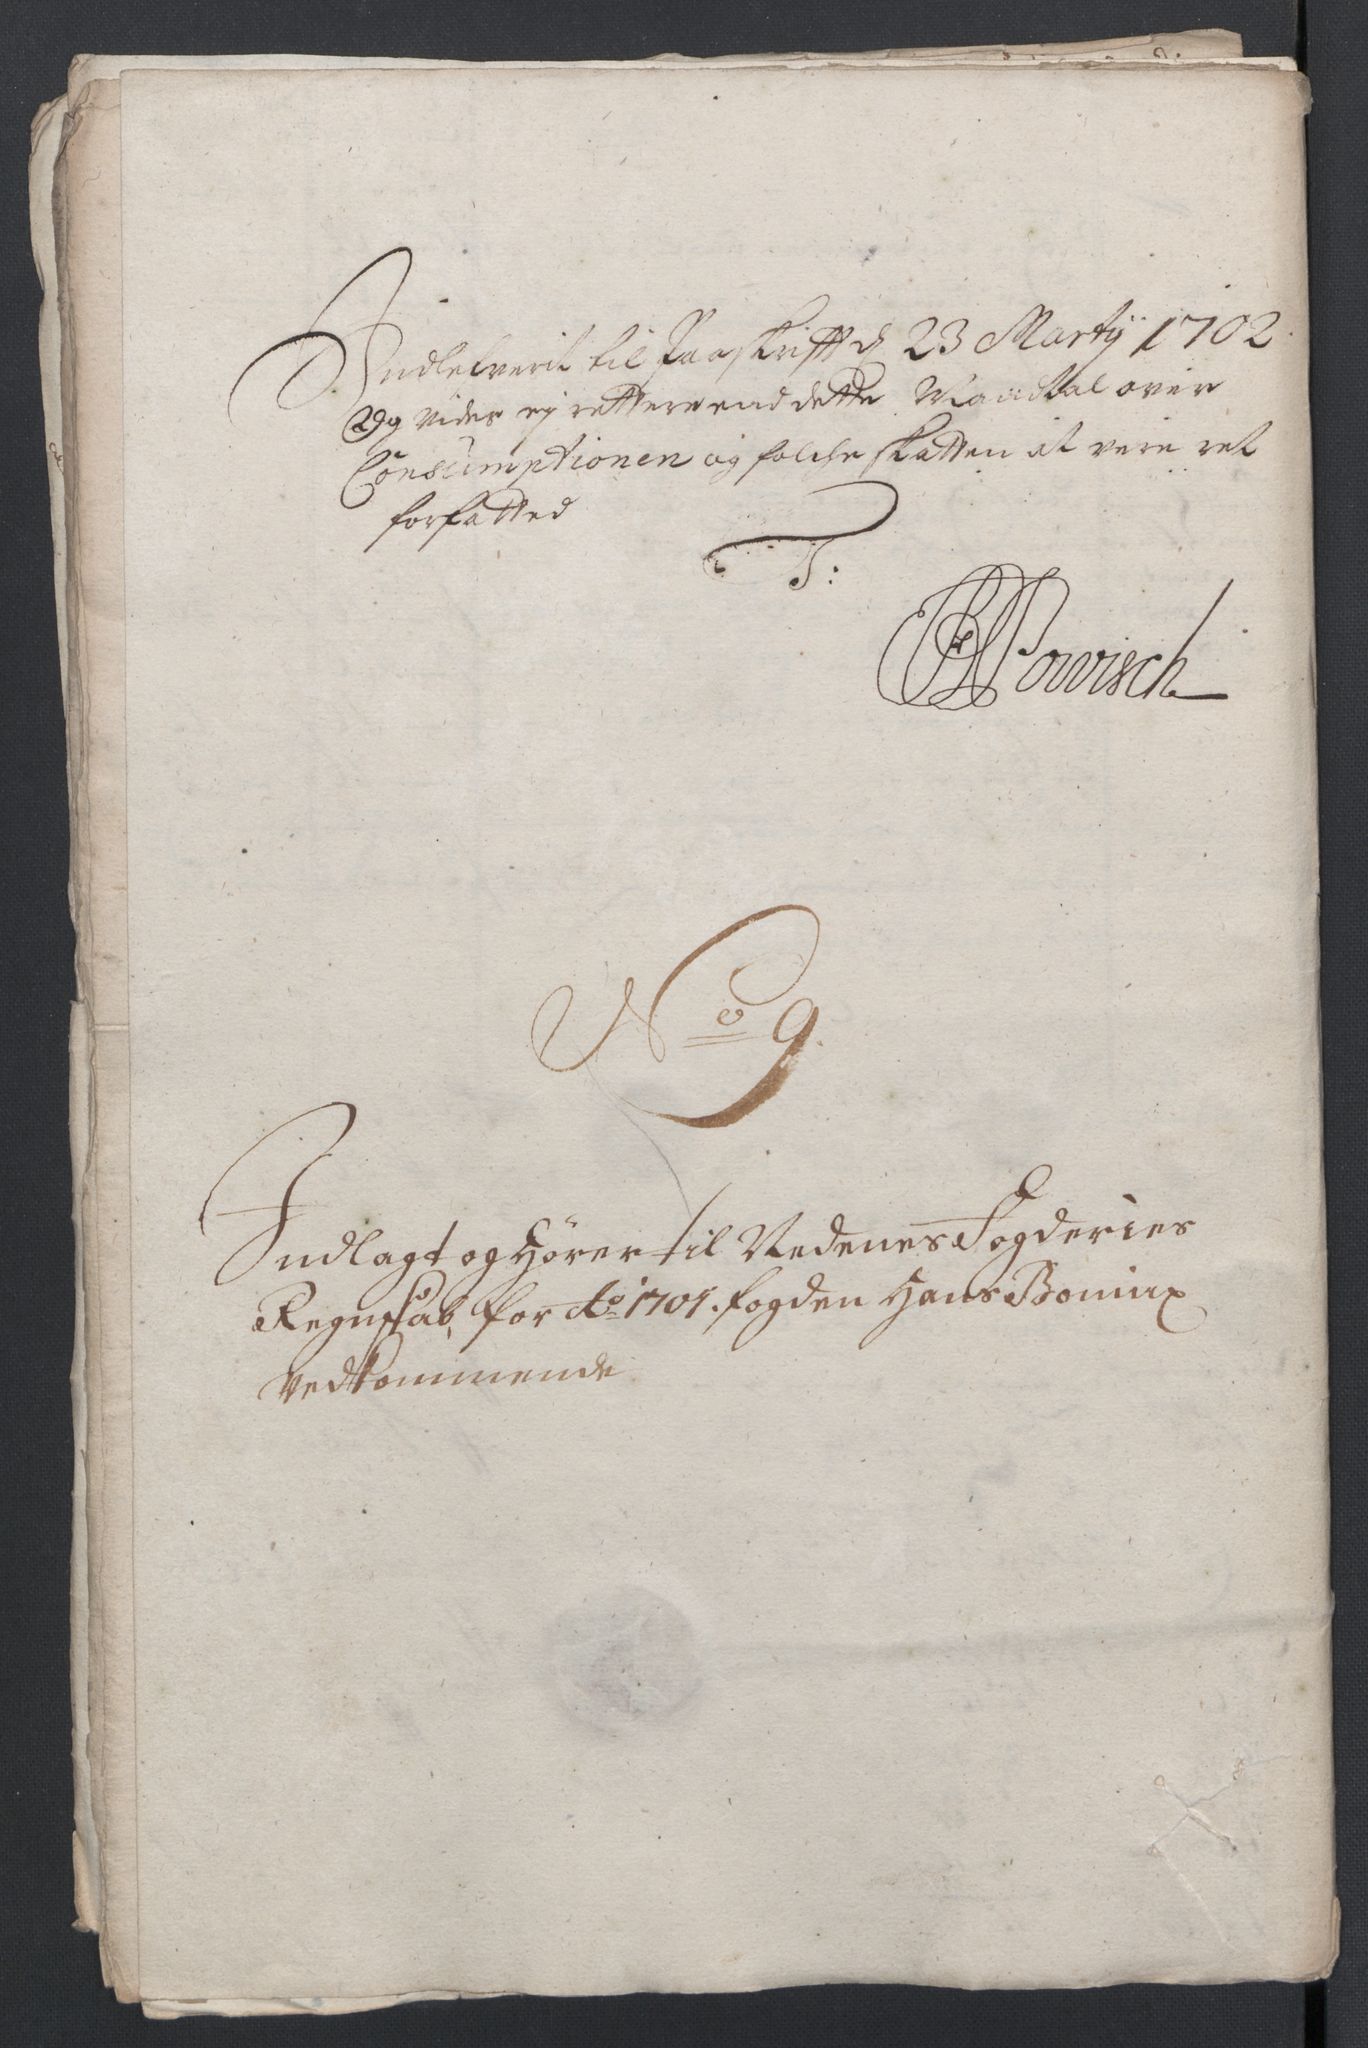 Indleverit til Paaskrifft d 23 Marty 1702
Og vides ej rettere end dette Mandtal over
Consumptionen og folche skatten at vere ret
forfatted
T:
Powisch
No 9.
Indlagt og Hører til Nedenes Fogderies
Regnskab, for Ao 1701. fogden Hans Bomux
Vedkommende